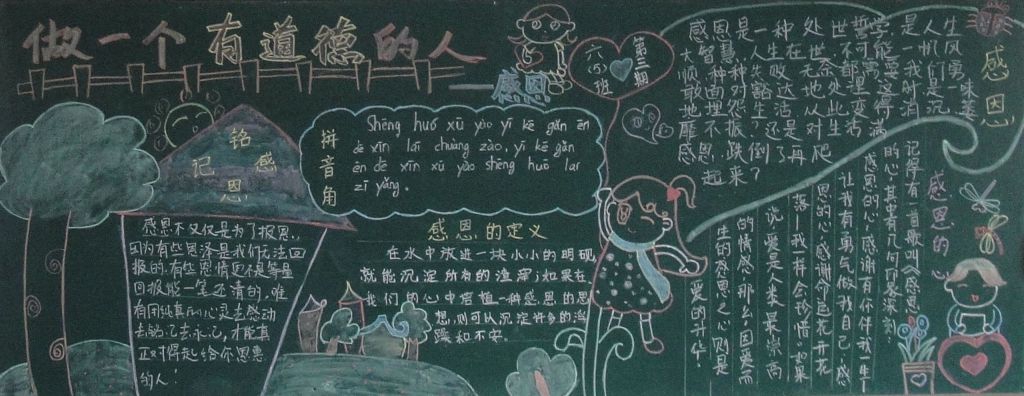 做一个有道德的人
——感恩
六(5)班
第三期
铭记
感恩
感恩不仅仅是为了报恩,
因为有些恩泽是我们无法回
报的,有些恩情更不是等量
回报能一笔还清的,唯
有用纯真的心灵去感动
去铭记去永记,才能真
正对得起给你恩惠
的人!
拼音角
Shēng huó xū yào yī kē gǎn ēn
de xīn lái chuàng zào, yī kē gǎn
ēn de xīn xū yào shēng huó lái
zī yǎng.
感恩的定义
在水中放进一块小小的明矾
就能沉淀所有的渣滓;如果在
我们的心中培植一种感恩的思
想,则可以沉淀许多的浮
躁和不安。
感恩
感恩是一种处世哲学,是人生
大智慧,人生在世不可能一帆风
顺,种种失败无余都需要我们勇
敢地面对
是一味
埋怨生活从此变得消沉萎
靡不振?还是对生活满
感恩,跌倒了再爬
起来?
感恩的心
记得有一首歌叫《感恩
的心》其中有几句印象深刻:
感恩的心,感谢有你伴我一生
让我有勇气做我自己.感
恩的心感谢命运花开花
落我一样会珍惜。如果
说,爱是人类最崇高
的情感,那么,因爱而
生的感恩之心则是
爱的升华。